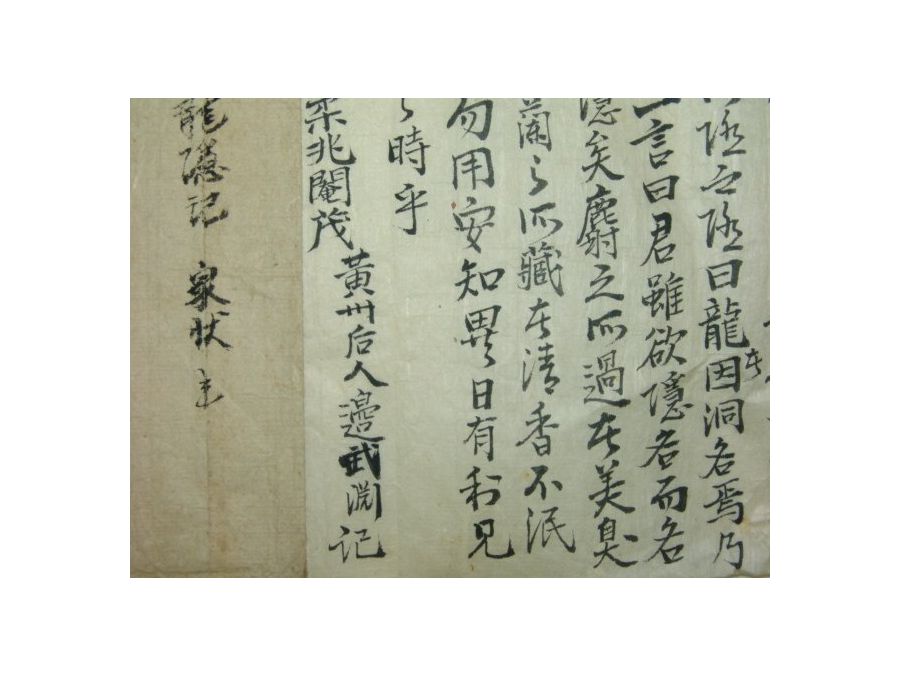 隱之隱曰龍因洞名焉乃
一言曰君雖欲隱名而名
隱矣麝之所過在美臭
蘭之所藏在清香不泯
勿用安知異日有利見
之時乎
柔兆閹茂 黃州后人邊武淵記
龍隱記 家狀